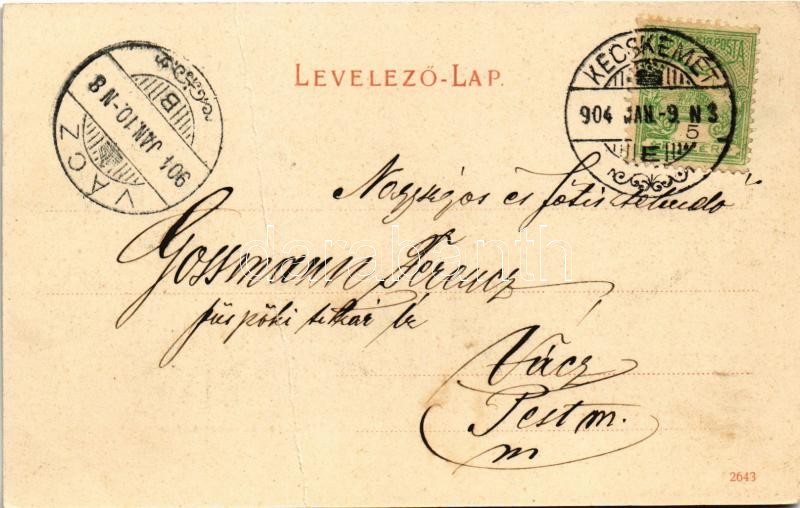 LEVELEZŐ-LAP.
KECSKEMÉT
904 JAN.-9. N 3
E
POSTA
5
VÁCZ
904 JAN.10.-N 8
B
Nagyságos és főtisztelendő
Gossmann Ferencz
püspöki titkár úr
Vácz
Pest m.
m
darabanth
2643